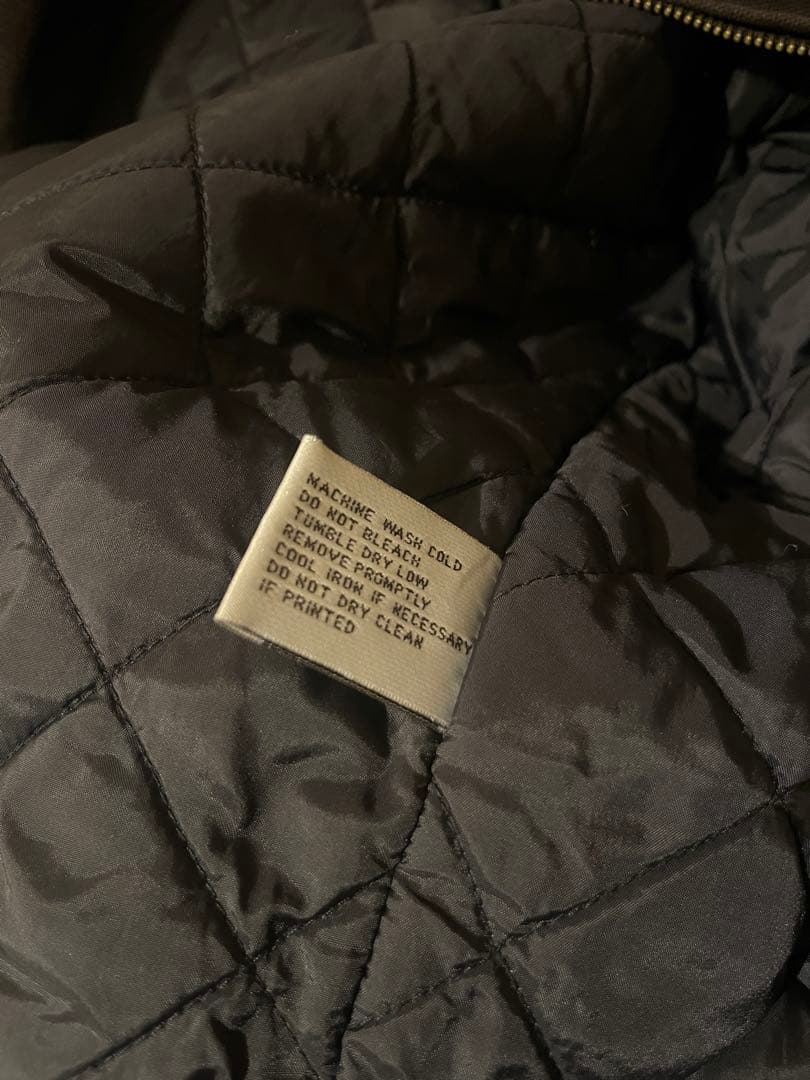 MACHINE WASH COLD
DO NOT BLEACH
TUMBLE DRY LOW
REMOVE PROMPTLY
COOL IRON IF NECESSARY
DO NOT DRY CLEAN
IF PRINTED